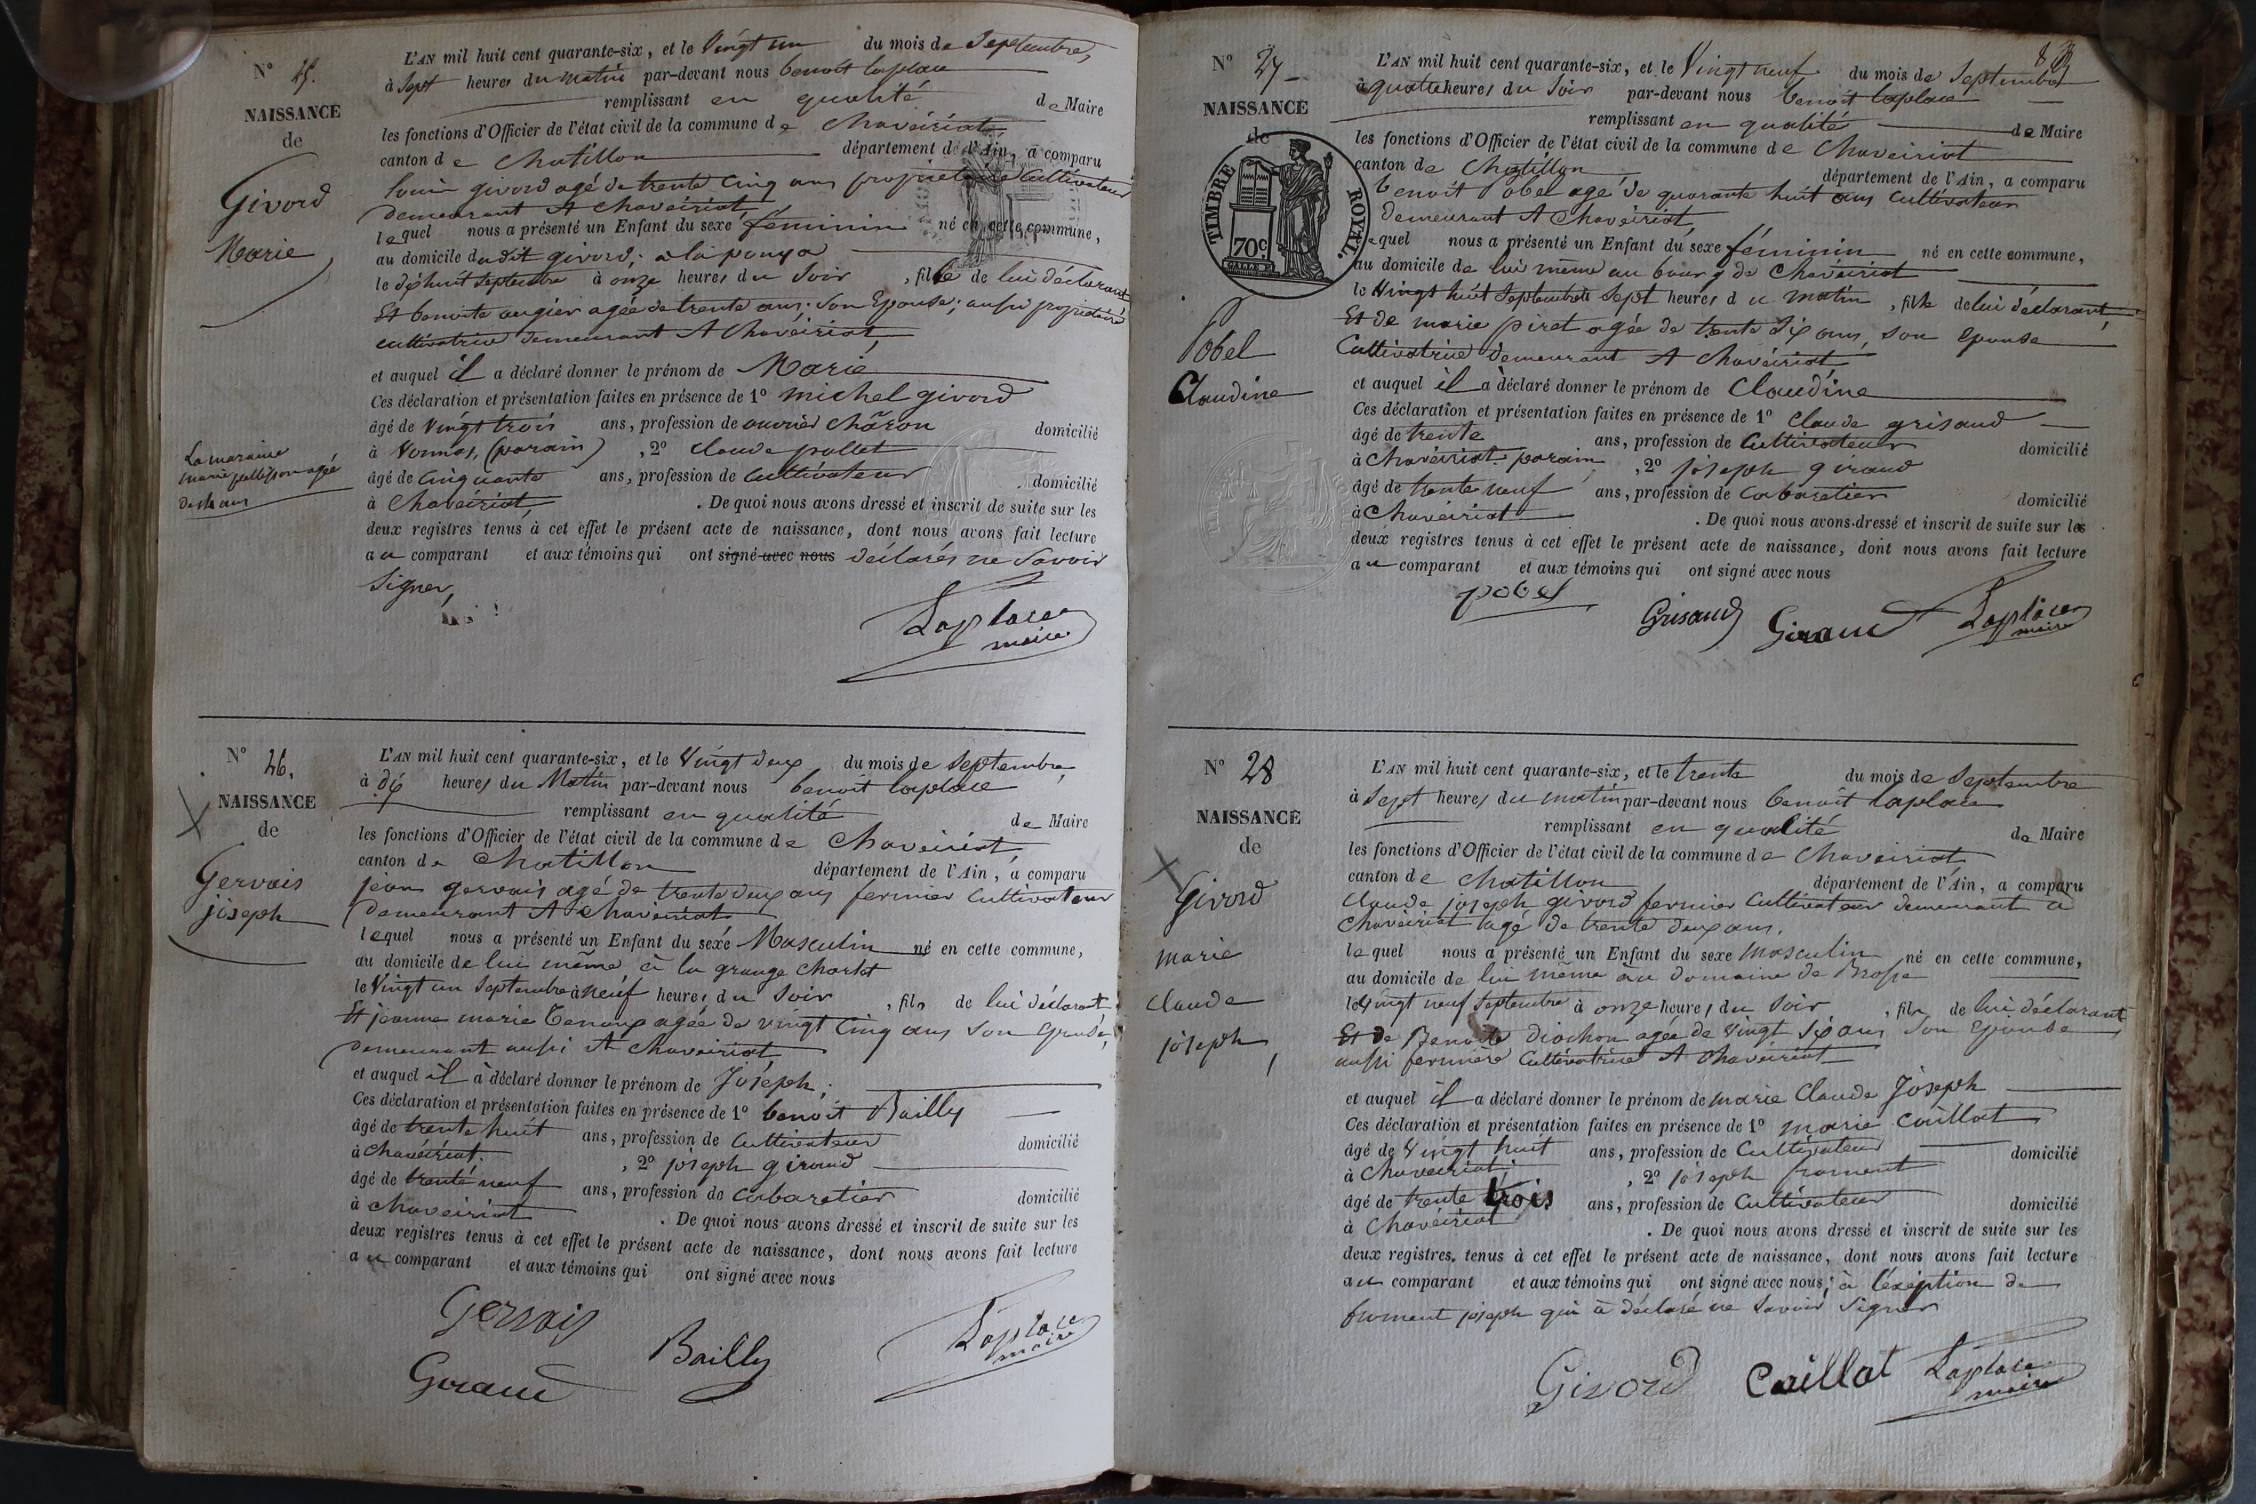 N° 25.
NAISSANCE
de
Givord
Marie
L'AN mil huit cent quarante-six, et le Vingt un du mois de Septembre,
à Sept heures du matin par-devant nous benoit laplace
remplissant en qualité de Maire
les fonctions d'Officier de l'état civil de la commune de Chaveiriat,
canton de Chatillon département de l'Ain, a comparu
louis givord agé de trente cinq ans propriétaire Cultivateur
demeurant A Chaveiriat,
lequel nous a présenté un Enfant du sexe féminin né en cette commune,
au domicile dudit givord, a la
le dixhuit Septembre à onze heures du Soir, fille de lui déclarant
Et benoite augier agée de trente ans; Son Epouse; aussi propriétaire
cultivatrice demeurant A Chavéiriat,
et auquel il a déclaré donner le prénom de Marie
Ces déclaration et présentation faites en présence de 1° michel givord
âgé de Vingt trois ans, profession de ouvrier charon domicilié
à Vonnas, (parain), 2° claude pollet
âgé de Cinquante ans, profession de Cultivateur domicilié
à Chavéiriat, . De quoi nous avons dressé et inscrit de suite sur les
deux registres tenus à cet effet le présent acte de naissance, dont nous avons fait lecture
au comparant et aux témoins qui ont signé avec nous déclarés ne Savoir
Signer,
La maraine
marie agé
de ans
Laplace
maire
N° 26.
NAISSANCE
de
Gervais
joseph
L'AN mil huit cent quarante-six, et le Vingt deux du mois de Septembre,
à dix heures du Matin par-devant nous benoit laplace
remplissant en qualité de Maire
les fonctions d'Officier de l'état civil de la commune de Chaveiriat,
canton de Chatillon département de l'Ain, a comparu
jean gervais agé de trente deux ans fermier Cultivateur
demeurant A Chaveiriat
lequel nous a présenté un Enfant du sexe Masculin né en cette commune,
au domicile de lui même, à la grange Charlet
le Vingt un Septembre à neuf heures du Soir, fils de lui déclarant
Et jeanne marie agée de vingt Cinq ans Son Epouse,
demeurant aussi A Chaveiriat
et auquel il à déclaré donner le prénom de Joséph,
Ces déclaration et présentation faites en présence de 1° benoit Bailly
âgé de trente huit ans, profession de Cultivateur domicilié
à Chavéiriat. , 2° joseph giraud
âgé de trente neuf ans, profession de Cabaretier domicilié
à Chaveiriat . De quoi nous avons dressé et inscrit de suite sur les
deux registres tenus à cet effet le présent acte de naissance, dont nous avons fait lecture
au comparant et aux témoins qui ont signé avec nous
Gervais
Bailly
Laplace
maire
Giraud
N° 27
NAISSANCE
de
TIMBRE ROYAL.
70c.
Pobel
Claudine
L'AN mil huit cent quarante-six, et le Vingt neuf du mois de Septembre
à quatre heures du Soir par-devant nous benoit laplace
remplissant en qualités de Maire
les fonctions d'Officier de l'état civil de la commune de Chaveiriat
canton de Chatillon département de l'Ain, a comparu
benoit Pobel agé de quarante huit ans Cultivateur
demeurant A Chaveiriat,
lequel nous a présenté un Enfant du sexe féminin né en cette commune,
au domicile de lui même au bourg de Chavéiriat
le Vingt huit Septembre à Sept heures du matin, fille de lui déclarant,
Et de marie piret agée de trente Six ans, son epouse
Cultivatrice demeurant A Chavéiriat
et auquel il a déclaré donner le prénom de Claudine
Ces déclaration et présentation faites en présence de 1° Claude grisaud
âgé de trente ans, profession de Cultivateur domicilié
à Chavéiriat parain, 2° joseph giraud
âgé de trente neuf ans, profession de Cabaretier domicilié
à Chaveiriat . De quoi nous avons dressé et inscrit de suite sur les
deux registres tenus à cet effet le présent acte de naissance, dont nous avons fait lecture
au comparant et aux témoins qui ont signé avec nous
pobel
Grisaud
Giraud
Laplace
maire
N° 28
NAISSANCE
de
Givord
marie
claude
joseph,
L'AN mil huit cent quarante-six, et le trente du mois de Septembre
à Sept heures du matin par-devant nous benoit laplace
remplissant en qualité de Maire
les fonctions d'Officier de l'état civil de la commune de Chaveiriat
canton de Chatillon département de l'Ain, a comparu
Claude joseph givord fermier Cultivateur demeurant a
Chavéiriat agé de trente deux ans,
lequel nous a présenté un Enfant du sexe masculin né en cette commune,
au domicile de lui même au domaine de Brosse
le Vingt neuf Septembre à onze heures du Soir, fils de lui déclarant
Et de Benoite diochon agée de Vingt Six ans Son Epouse
aussi fermière Cultivatrice A Chavéiriat
et auquel il a déclaré donner le prénom de marie Claude Joseph
Ces déclaration et présentation faites en présence de 1° marie Caillat
âgé de Vingt huit ans, profession de Cultivateur domicilié
à Chaveiriat, , 2° joseph froment
âgé de trente trois ans, profession de Cultivateur domicilié
à Chavéiriat . De quoi nous avons dressé et inscrit de suite sur les
deux registres, tenus à cet effet le présent acte de naissance, dont nous avons fait lecture
au comparant et aux témoins qui ont signé avec nous, à l'éxéption de
froment joseph qui à déclaré ne Savoir Signer
Givord
Caillat
Laplace
maire